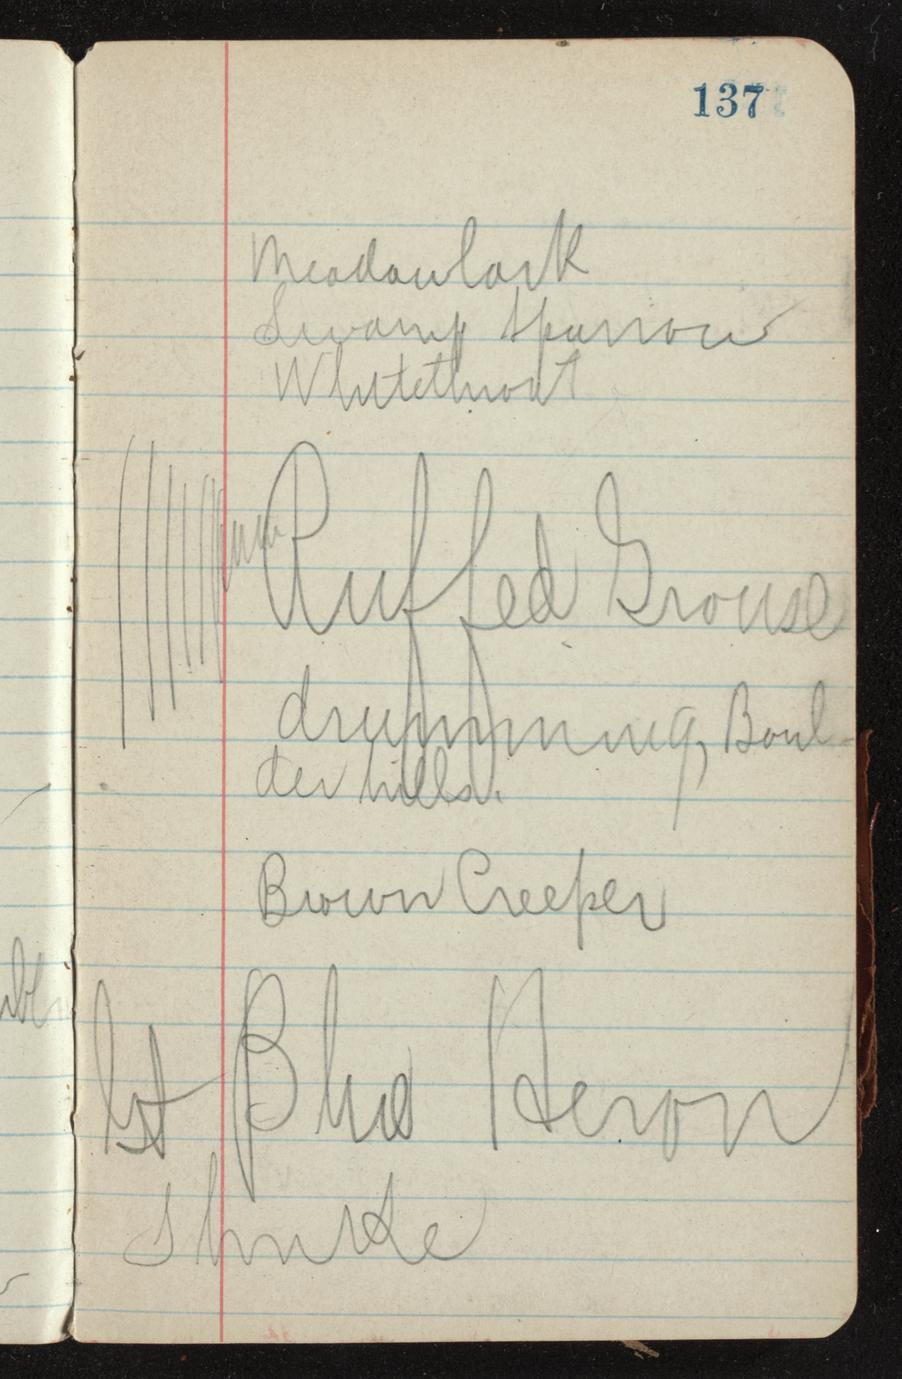 137
Meadowlark
Swamp Sparrow
Whitethroat
Ruffed Grouse
drumming, Boul
der hills.
Brown Creeper
Blue Heron
Shrike